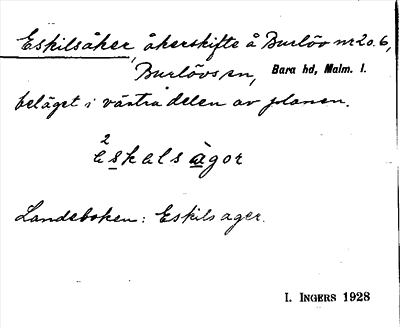 Eskilsåker, åkerskifte å Burlöv nr 20.6,
Burlövs sn, Bara hd, Malm. l.
beläget i västra delen av planen.
²eskalsàgor
Landeboken: Eskils ager.
I. INGERS 1928